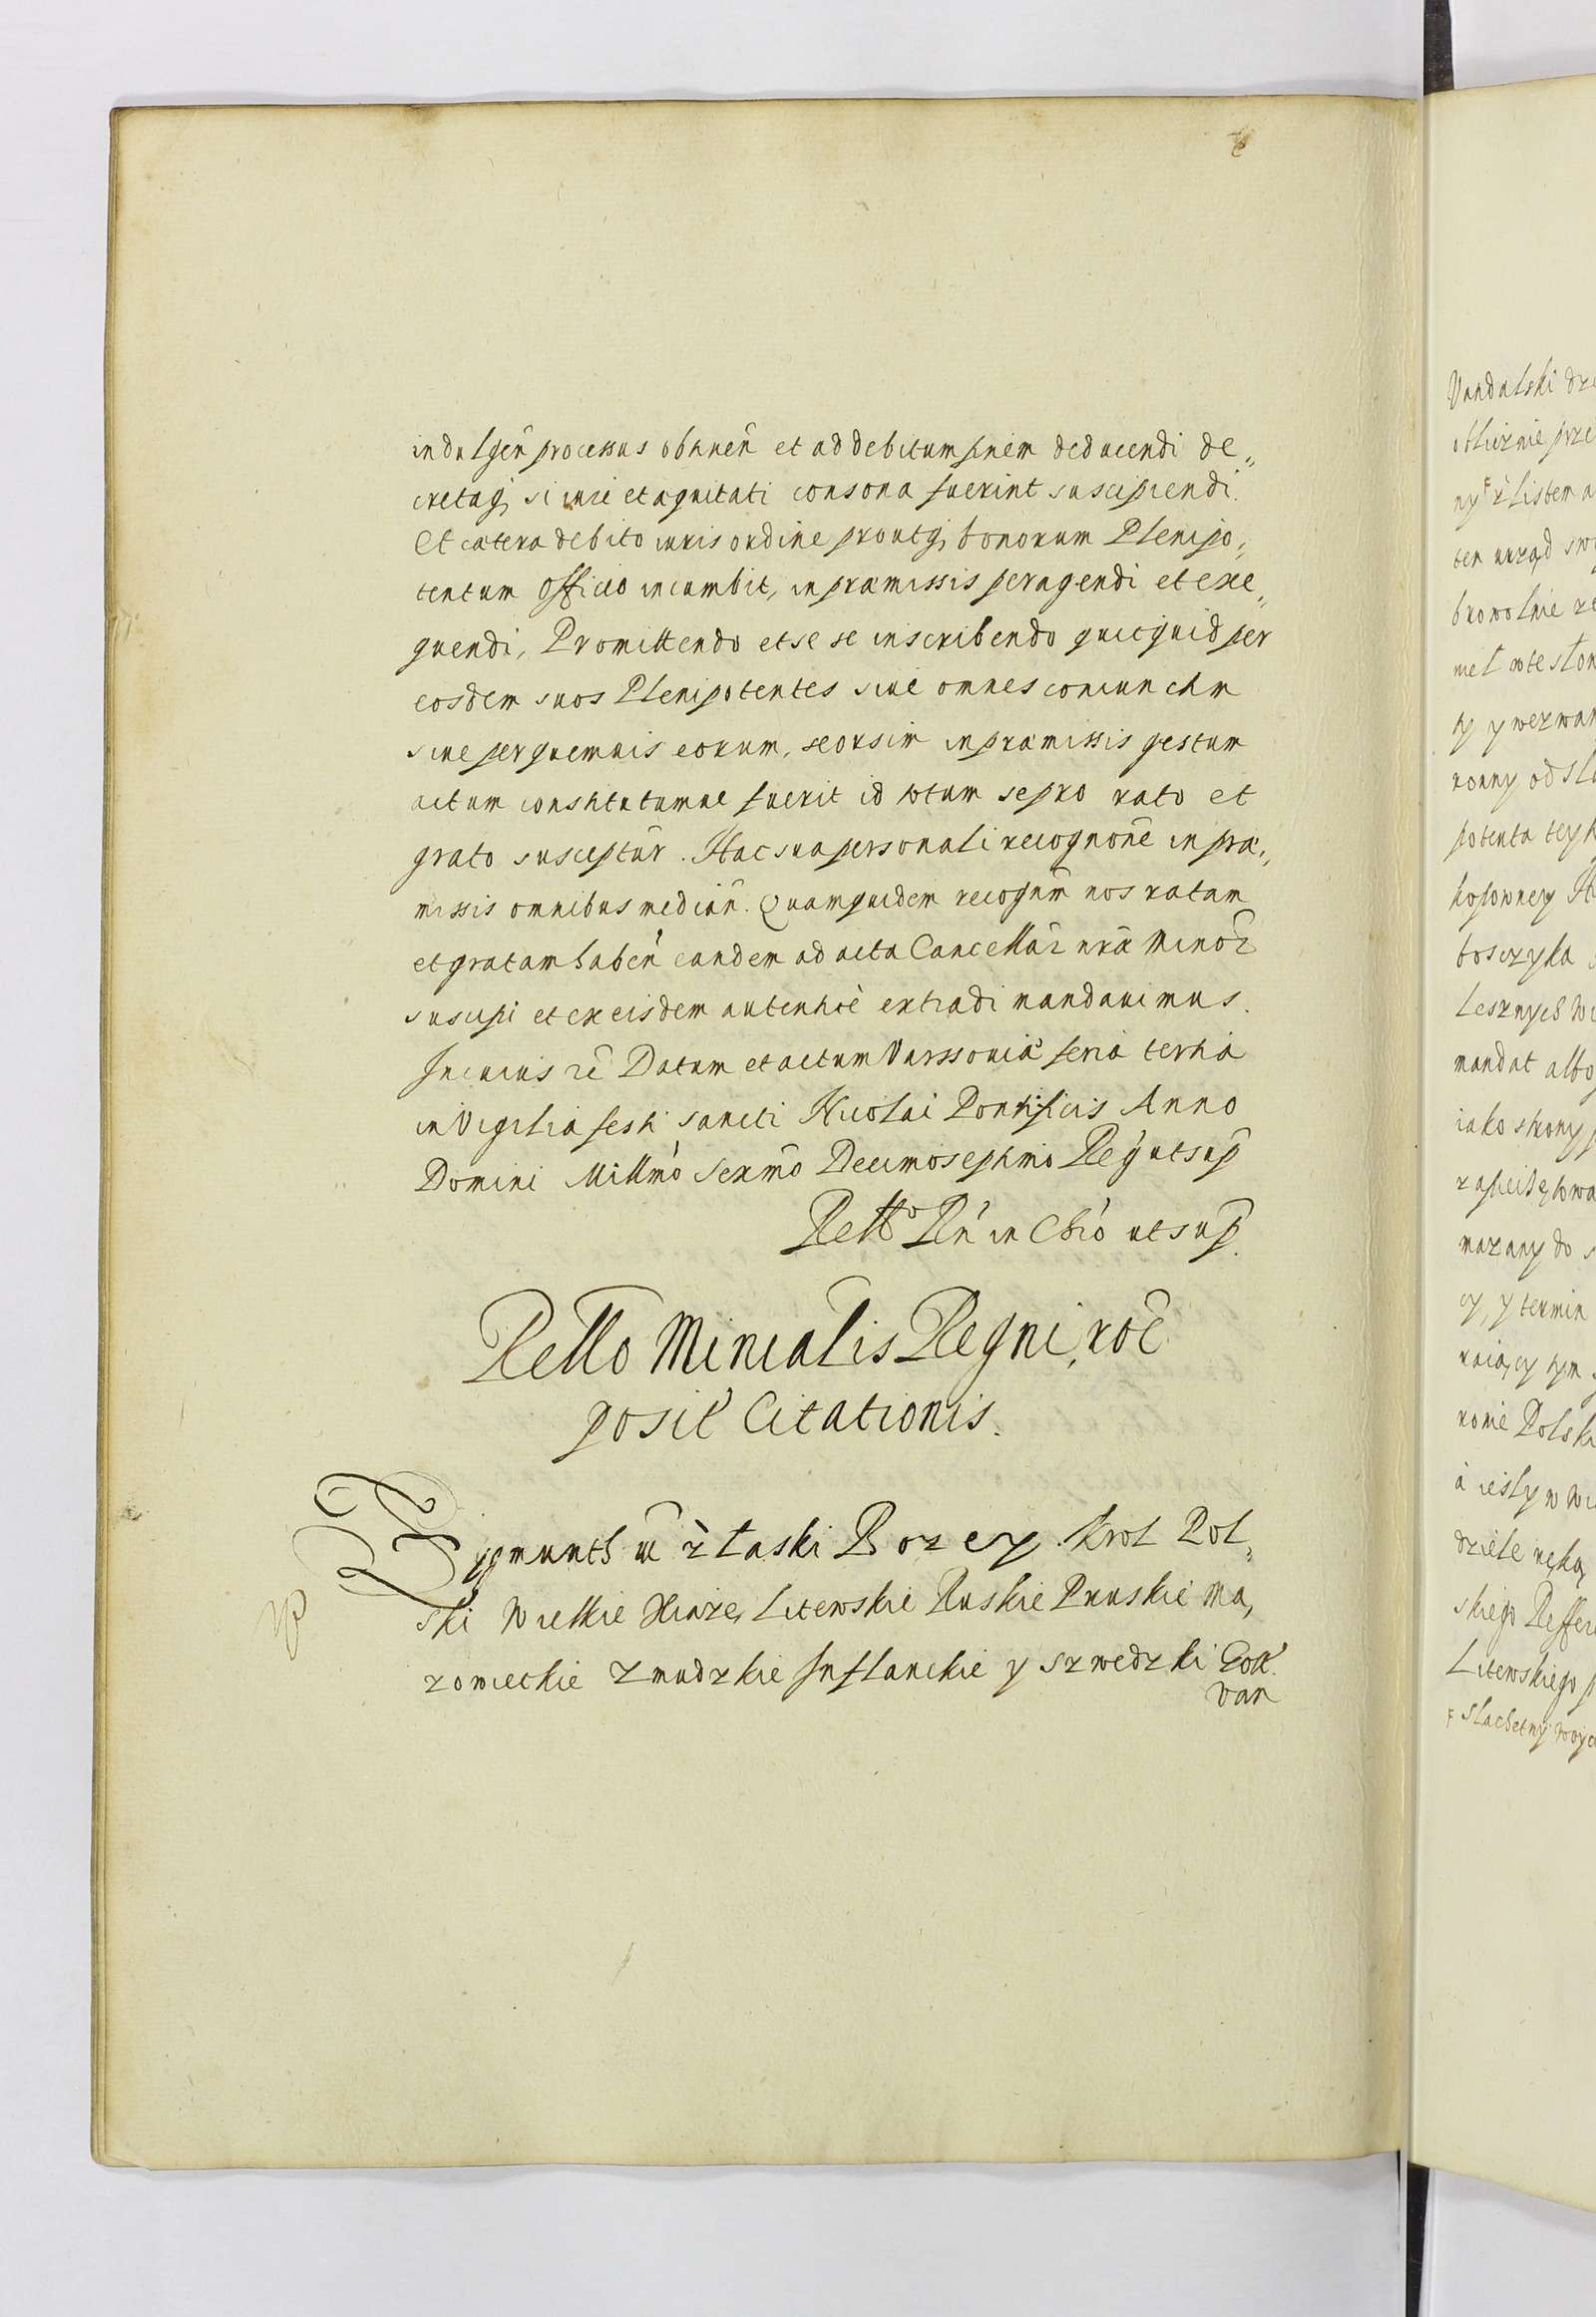 indulgen̄ processus obtinen̄ et ad debitum finem deducendi de„
cretaq, si iuri et æquitati consona fuerint suscipiendi.
Et cætera debito iuris ordine proutq, bonorum Plenipo„
tentum officio incumbit, in præmissis peragendi et exe„
quendi, Promittendo et se se inscribendo quicquid per
eosdem suos Plenipotentes siue omnes coniunctim
siue per quemuis eorum, seorsim in præmissis gestum
actum constitutumue fuerit id totum se pro rato et
grato susceptūr. Hac sua personali recognōne in præ„
missis omnibus median̄. Quamquidem recognm̄ nos ratam
et gratam haben̄ eandem ad acta Cancellar nrā Minor
suscipi et ex eisdem autenticè extradi mandauimus.
In cuius rē Datum et actum Varssouiæ feria tertia
in Vigilia festi sancti Nicolai Pontificis Anno
Domini Millmō Sexmō Decimoseptimo Reg utsup
Rello Rn̄ in Chrō utsup.
Rello Minialis Regni, roē
posit Citationis.
Zygmunth III z łaski Bozey Krol Pol„
ski Wielkie Xiąże, Litewskie Ruskie Pruskie Ma,
zowieckie Zmudzkie Inflanckie y szwedzki Gott.
Van
Vandalski
obliznie
ny z listem
ten urząd
browolnie
met
ty y wezwan
ronny od
potenta
boszczyka
Lesznych
mandat albo
iako strony
mazany do
cy, y termin
raiący tym
ronie Polski
a iesly w
dziele ręką
skiego
Litewskiego
Slachetny